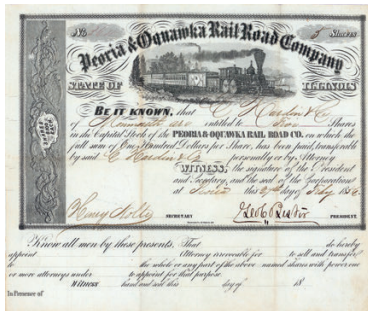 No 5 Shares
Peoria & Oquawka Rail Road Company
STATE OF ILLINOIS
BE IT KNOWN, that C Hardin & Co
of Monmouth are entitled to Five Shares
in the Capital Stock of the PEORIA & OQUAWKA RAIL ROAD CO. on which the
full sum of One Hundred Dollars per Share, has been paid, transferable
by said C Hardin & Co personally or by Attorney
WITNESS, the signature of the President
and Secretary, and the seal of the Corporation
at Peoria this day of 1856
Henry Nolte SECRETARY PRESIDENT
Know all men by these presents, That do hereby
appoint Attorney irrevocable for to sell and transfer
to the whole or any part of the above named shares with power one
or more attorneys under to appoint for that purpose.
Witness hand and seal this day of 18
In Presence of